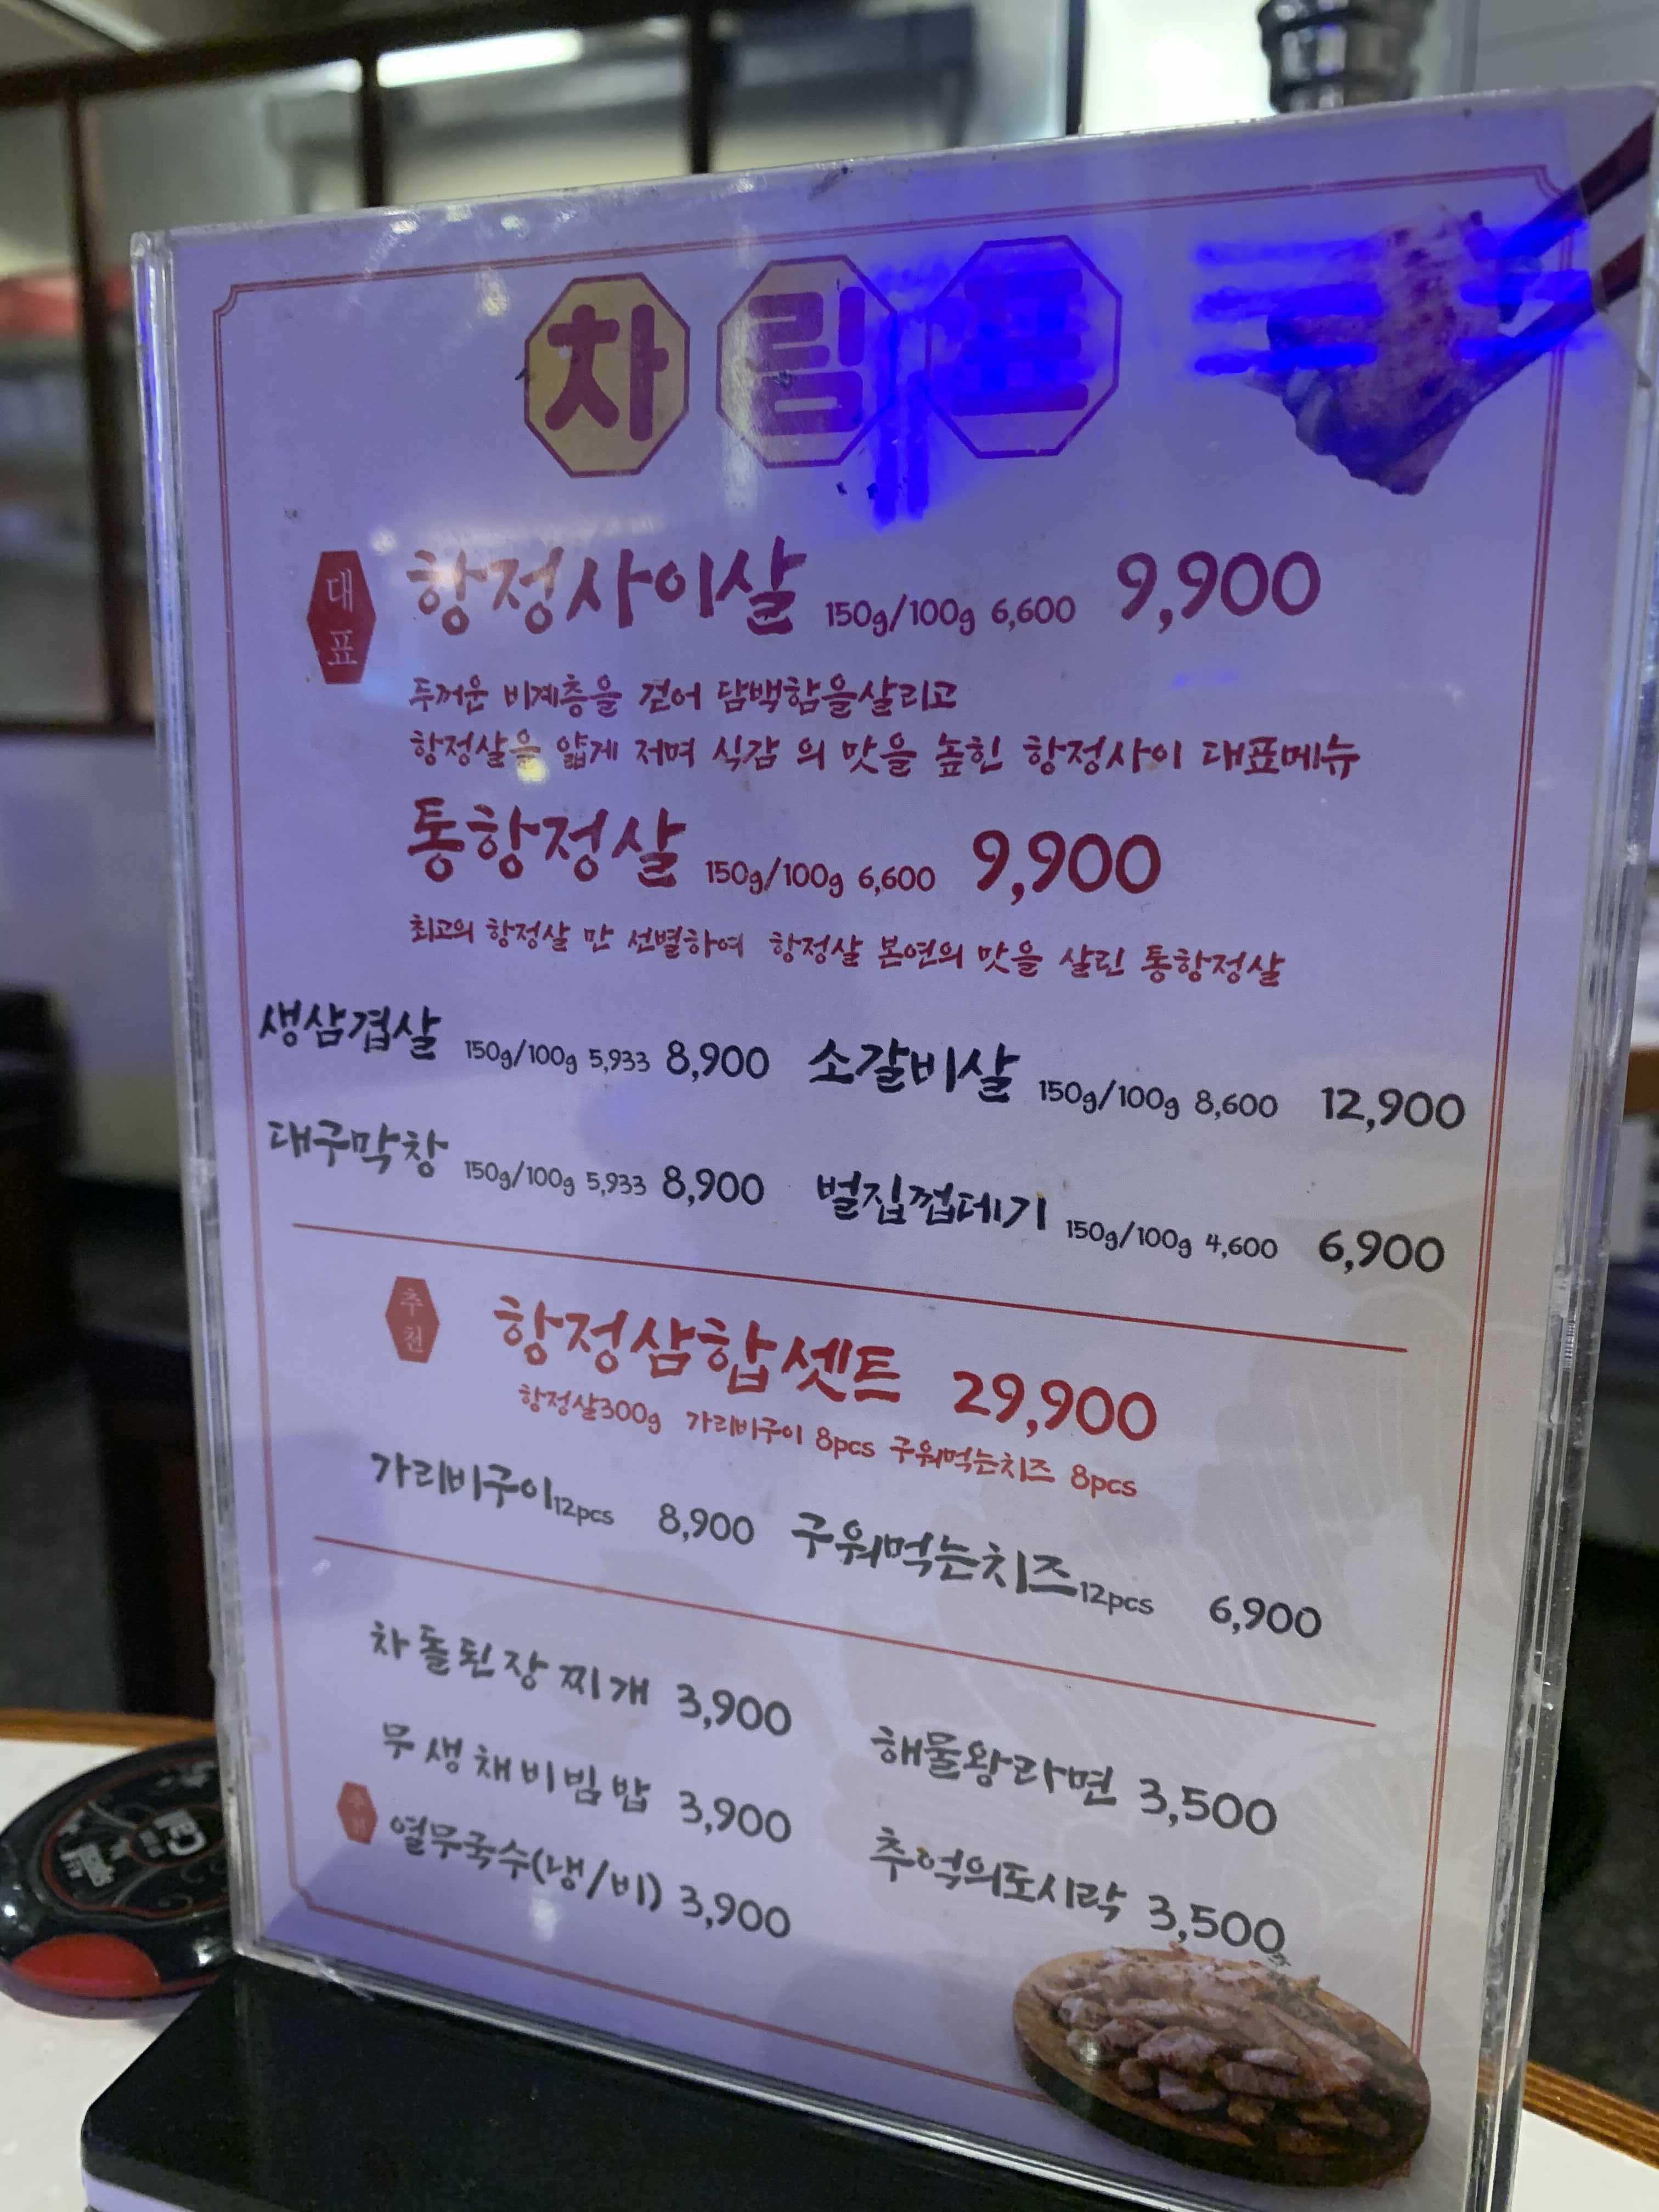 차림표
대표
항정사이살 150g/100g 6,600 9,900
두꺼운 비계층을 걷어 담백함을살리고
항정살을 얇게 저며 식감 의 맛을 높힌 항정사이 대표메뉴
통항정살 150g/100g 6,600 9,900
최고의 항정살 만 선별하여 항정살 본연의 맛을 살린 통항정살
생삼겹살 150g/100g 5,933 8,900 소갈비살 150g/100g 8,600 12,900
대구막창 150g/100g 5,933 8,900 벌집껍데기 150g/100g 4,600 6,900
추천
항정삼합셋트 29,900
항정살300g 가리비구이 8pcs 구워먹는치즈 8pcs
가리비구이12pcs 8,900 구워먹는치즈12pcs 6,900
차돌된장찌개 3,900 해물왕라면 3,500
무생채비빔밥 3,900 추억의도시락 3,500
열무국수(냉/비) 3,900